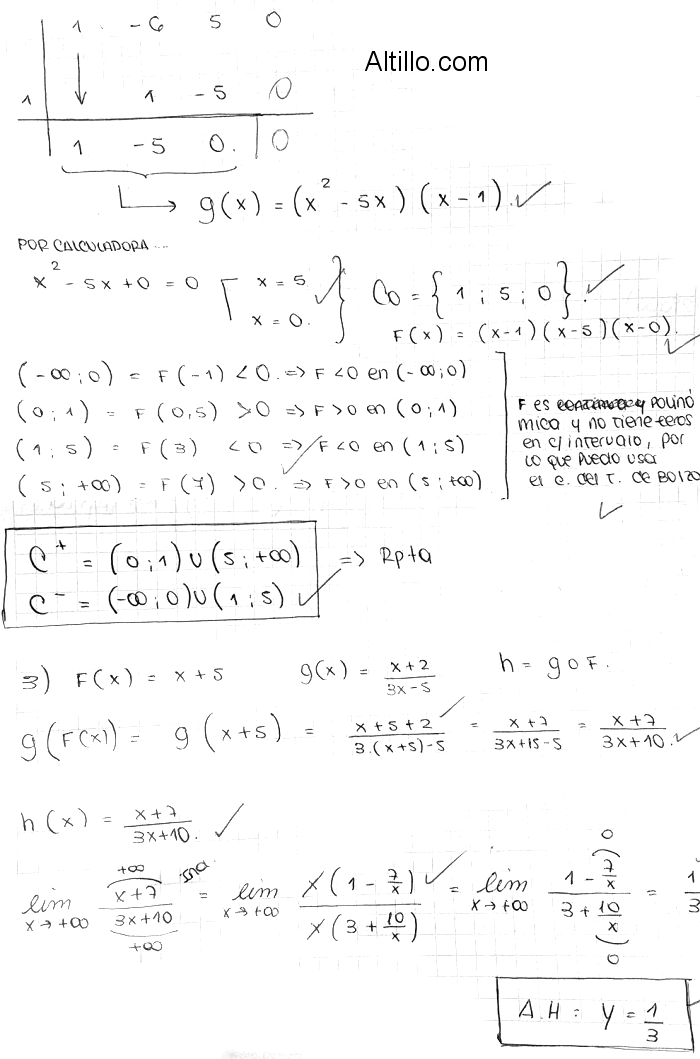 1 -6 5 0
Altillo.com
1 ↓ 1 -5 0
1 -5 0. 0
→ g(x) = (x² - 5x) (x - 1). ✓
POR CALCULADORA...
x² - 5x + 0 = 0 x = 5 ✓ x = 0. } C₀ = { 1 ; 5 ; 0 }. ✓
F(x) = (x-1)(x-5)(x-0). ✓
(-∞; 0) = F(-1) < 0. => F < 0 en (-∞; 0)
(0; 1) = F(0,5) > 0 => F > 0 en (0; 1)
(1; 5) = F(3) < 0 => F < 0 en (1; 5)
(5; +∞) = F(7) > 0. ✓ => F > 0 en (5; +∞)
F es y polinó
mica y no tiene ceros
en c/ intervalo, por
lo que puedo usar
el c. del T. de Bolzo
✓
C⁺ = (0; 1) ∪ (5; +∞) => Rpta
C⁻ = (-∞; 0) ∪ (1; 5) ✓
3) F(x) = x + 5 g(x) = (x+2)/(3x-5) h = g o F.
g(F(x)) = g(x+5) = (x+5+2)/(3.(x+5)-5) ✓ = (x+7)/(3x+15-5) = (x+7)/(3x+10). ✓
h(x) = (x+7)/(3x+10). ✓
lim x→+∞ (x+7)/(3x+10) +∞ +∞ = lim x→+∞ x(1 - 7/x)/x(3 + 10/x) ✓ = lim x→+∞ (1 - 7/x)/(3 + 10/x) 0 0 = 1/3
A.H: y = 1/3